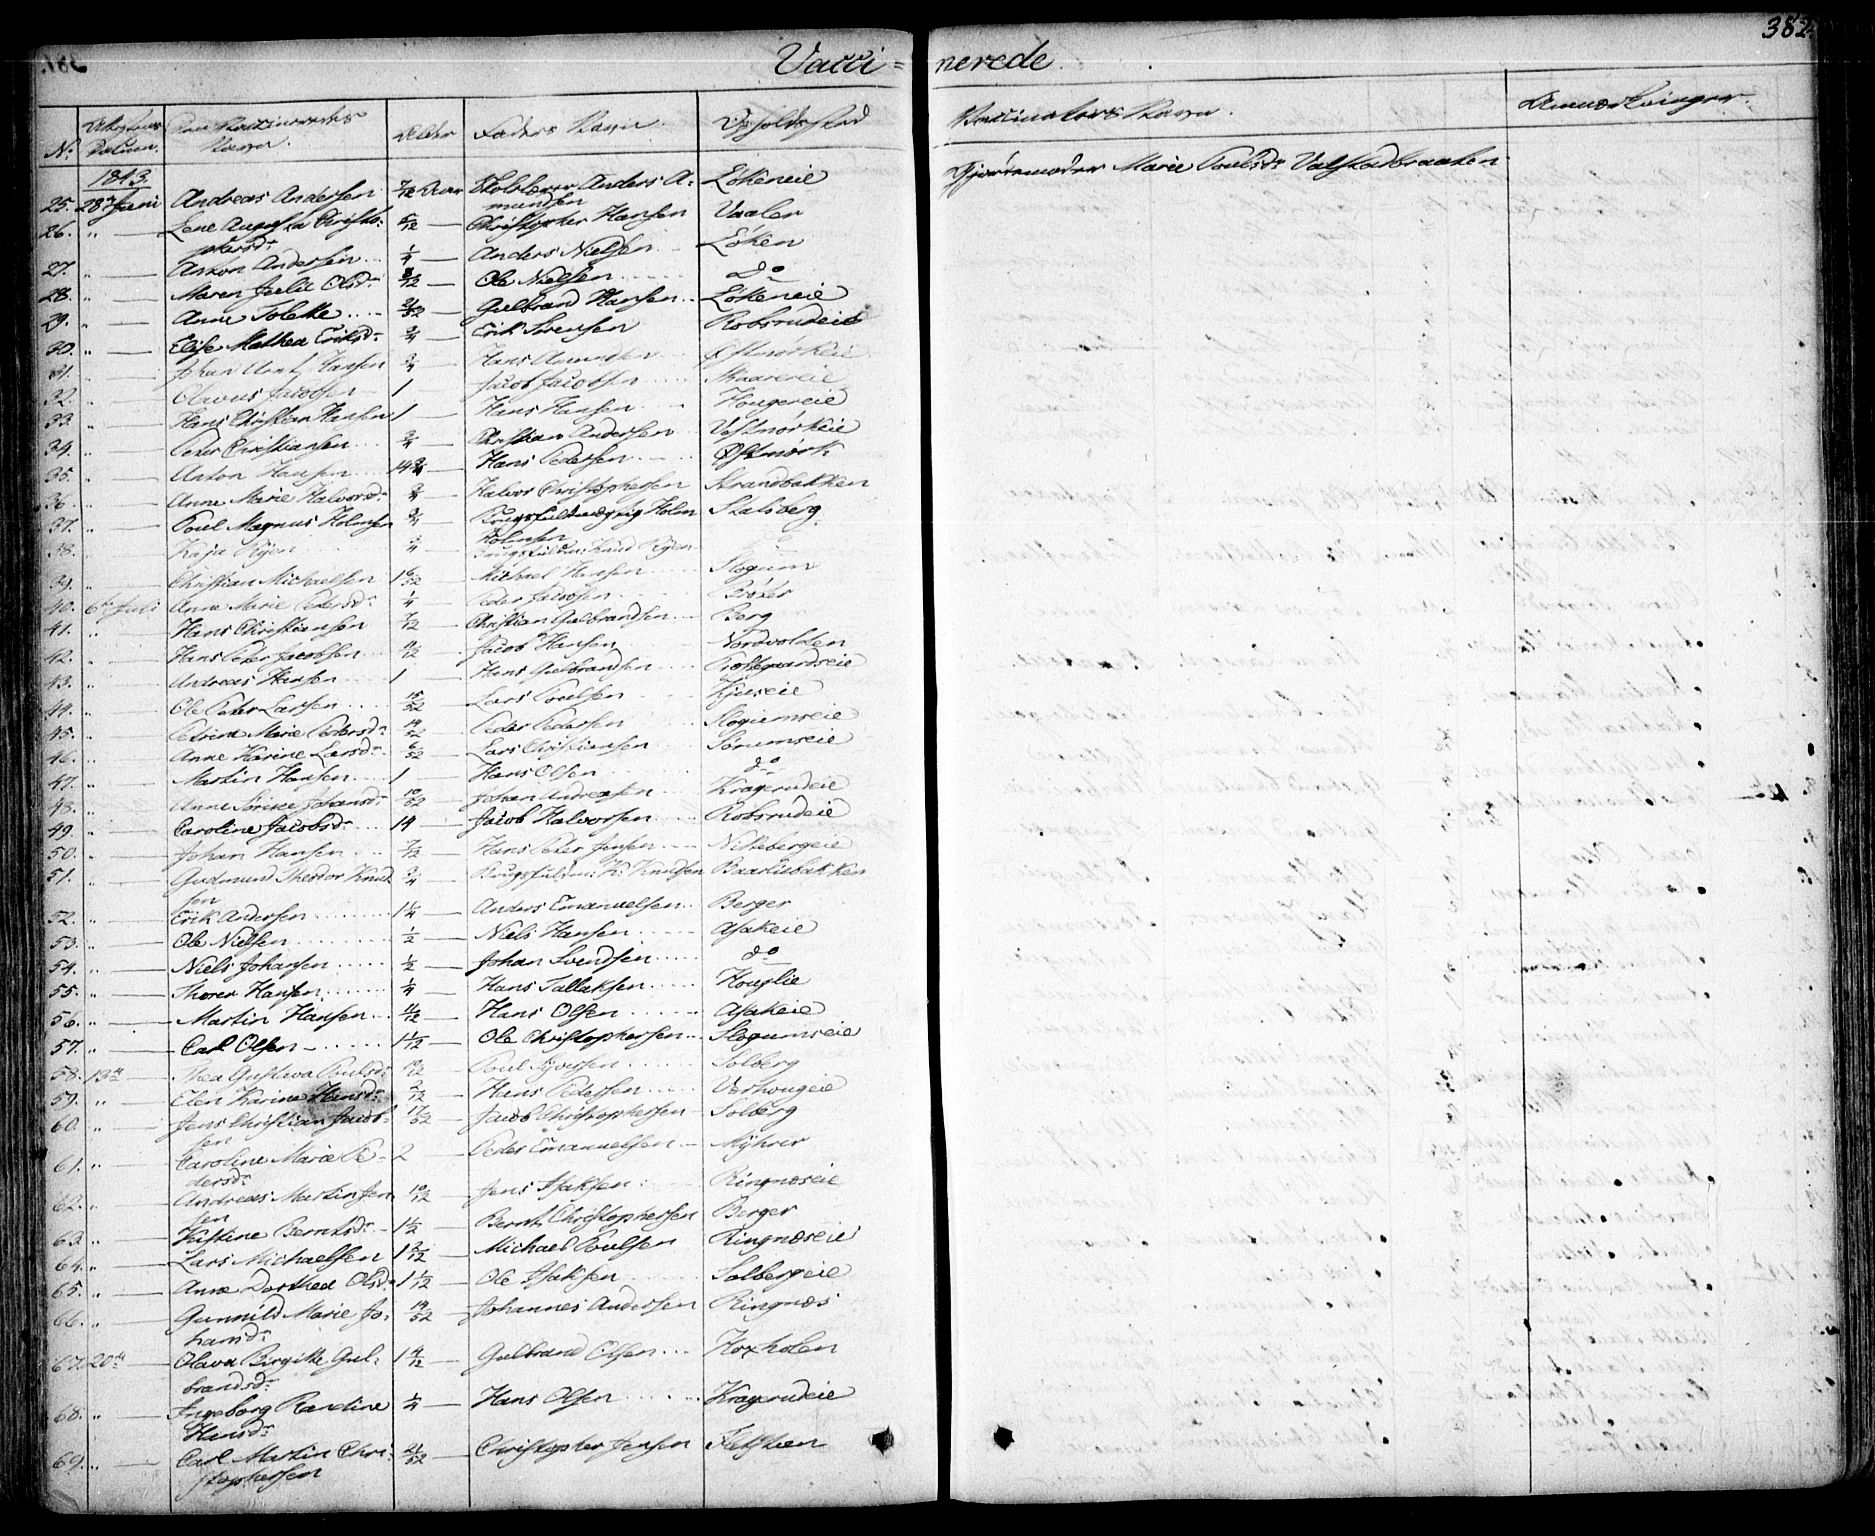 382.
Vacci= nerede.
No. Attestens Datum. Den Vaccineredes Navn. Alder Faders Navn. Opholdssted Vaccinators Navn. Anmærkninger.
1843.
25. 28de Juni Andreas Andersen 7/12 Aar Skolelærer Anders A- Lökeneie Gjordemoder Marie Poulsdr Valstadbraaten
mundsen
26. " — Lene Augusta Christo- 5/12 — Christopher Hansen Vaaler
phersdr
27. " — Anton Andersen 1/4 — Anders Nielsen Löken
28. " — Maren Julie Olsdr 8/12 — Ole Nielsen do
29. " — Anne Tolette Gulbrand Hansen Lökeneie
30. " — Elise Mathea Eriksdr 3/4 — Erik Sörensen Robsrudeie
31. " — Johan Hansen 3/4 — Hans Amundsen Östmörkeie
32. " — Olavus Jacobsen 1 — Jacob Jacobsen Skaarereie
33. " — Hans Christian Hansen 1 — Hans Hansen Hougereie
34. " — Peter Christiansen 3/4 — Christian Andersen Vestmörkeie
35. " — Anton Hansen 14 3/4 Hans Pedersen Östmörk
36. " — Anne Marie Halvorsdr 3/4 — Halvor Christophersen Strandbakken
37. " — Poul Magnus Holmsen 3/4 — Holm Stalsberg
Holmsen
38. " — Kaja Ryen 3/4 — Brugsfuldm: Knud Ryen do
39. " — Christian Michaelsen 1 6/52 Michael Hansen Slogum
40. 6te Juli Anne Marie Pedersdr 1/4 — Peder Jacobsen Bröter
41. " — Hans Christiansen 7/12 — Christian Gulbrandsen Berg
42. " — Hans Peter Jacobsen 11/12 — Jacob Hansen Nordvolden
43. " — Andreas Hansen 1 — Hans Gulbrandsen Tottgaardseie
44. " — Ole Peter Larsen 15/52 Lars Poulsen Kjuseie
45. " — Petrine Marie Pedersdr 14/52 Peder Pedersen Slogumseie
46. " — Anne Karine Larsdr 6/52 Lars Christiansen Sörumseie
47. " — Martin Hansen 1 — Hans Olsen do
48. " — Anne Sörine Johansdr 10/52 Johan Andreasen Kragerudeie
49. " — Caroline Jacobsdr 14 — Jacob Halvorsen Robsrudeie
50. " — Johan Hansen 7/12 — Hans Peter Jensen Nittebergeie
51. " — Gudmund Theodor Knud 3/4 — Brugsfuldm: K. Knudsen Baardsbakken
sen
52. " — Erik Andersen 1 1/4 — Anders Emanuelsen Berger
53. " — Ole Nielsen 1/2 — Niels Hansen Asakeie
54. " — Niels Johansen 1/2 — Johan Svendsen do
55. " — Thorer Hansen 1/4 — Hans Tallaksen Houglie
56. " — Martin Hansen 11/12 — Hans Olsen Asakeie
57. " — Carl Olsen 1 1/12 — Ole Christophersen Slogumseie
58. 13de — Thea Gustava Poulsdr 10/12 Poul Syversen Solberg
59. " — Elen Karine Hansdr 2/12 — Hans Pedersen Verhougeie
60. " — Jens Christian Jacob- 17/52 — Jacob Christophersen Solberg
sen
61. " — Caroline Marie Pe- 2 Peder Emanuelsen Myhrer
dersdr
62. " — Andreas Martin Jen 10/12 — Jens Isaksen Ringnæseie
sen
63. " — Kristine Berntsdr 1 1/2 — Bernt Christophersen Berger
64. " — Lars Michaelsen 1 2/12 — Michael Poulsen Ringnæseie
65. " — Anne Dorthea Olsdr 1 1/12 — Ole Isaksen Solbergeie
66. " — Gunnild Marie Jo- 14/52 — Johannes Andersen Ringnæs
hansdr
67. 20de — Olava Birgitte Gul- 1 4/12 — Gulbrand Olsen Koxholen
brandsdr
68. " — Ingeborg Randine 1/4 — Hans Olsen Kragerudeie
Hansdr
69. " — Carl Martin Chri- 21/52 — Christopher Jensen
stophersen